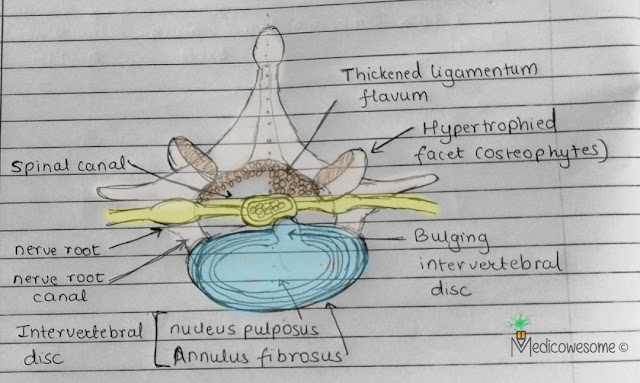 Thickened ligamentum
flavum
Hypertrophied
facet (osteophytes)
Spinal canal
nerve root
nerve root
canal
Bulging
intervertebral
disc
Intervertebral
disc
nucleus pulposus
Annulus fibrosus
Medicowesome ©